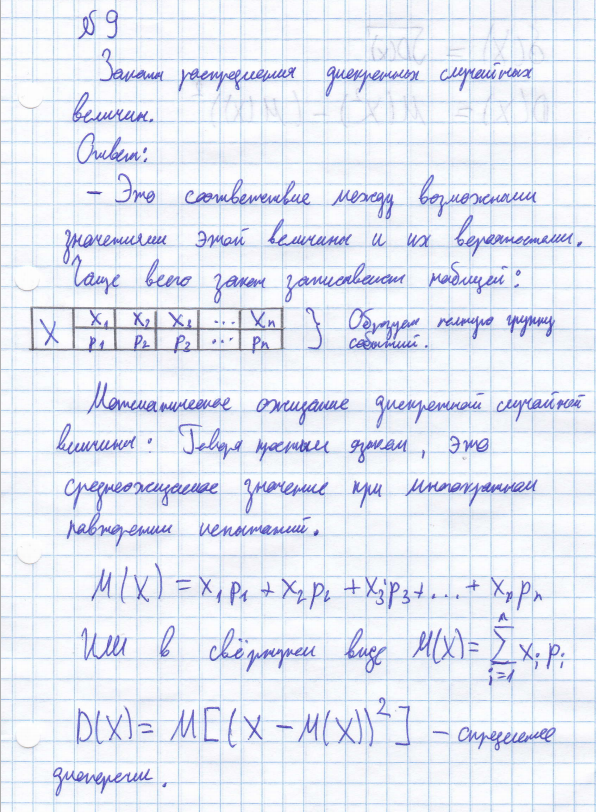 № 9
Закона распределения дискретных случайных
величин.
Ответ:
– Это соответствие между возможными
значениями этой величины и их вероятностями.
Чаще всего закон записывают таблицей:
X | x₁ | x₂ | x₃ | ... | xₙ
p₁ | p₂ | p₃ | ... | pₙ
} Образуем полную группу
событий.
Математическое ожидание дискретной случайной
величины: Говоря простым языком, это
среднеожидаемое значение при многократном
повторении испытаний.
M(X) = x₁p₁ + x₂p₂ + x₃p₃ + ... + xₙpₙ
Или в свёрнутом виде M(X) = ∑ⁿᵢ₌₁ xᵢ pᵢ
D(X) = M[(X – M(X))²] – определение
дисперсии.